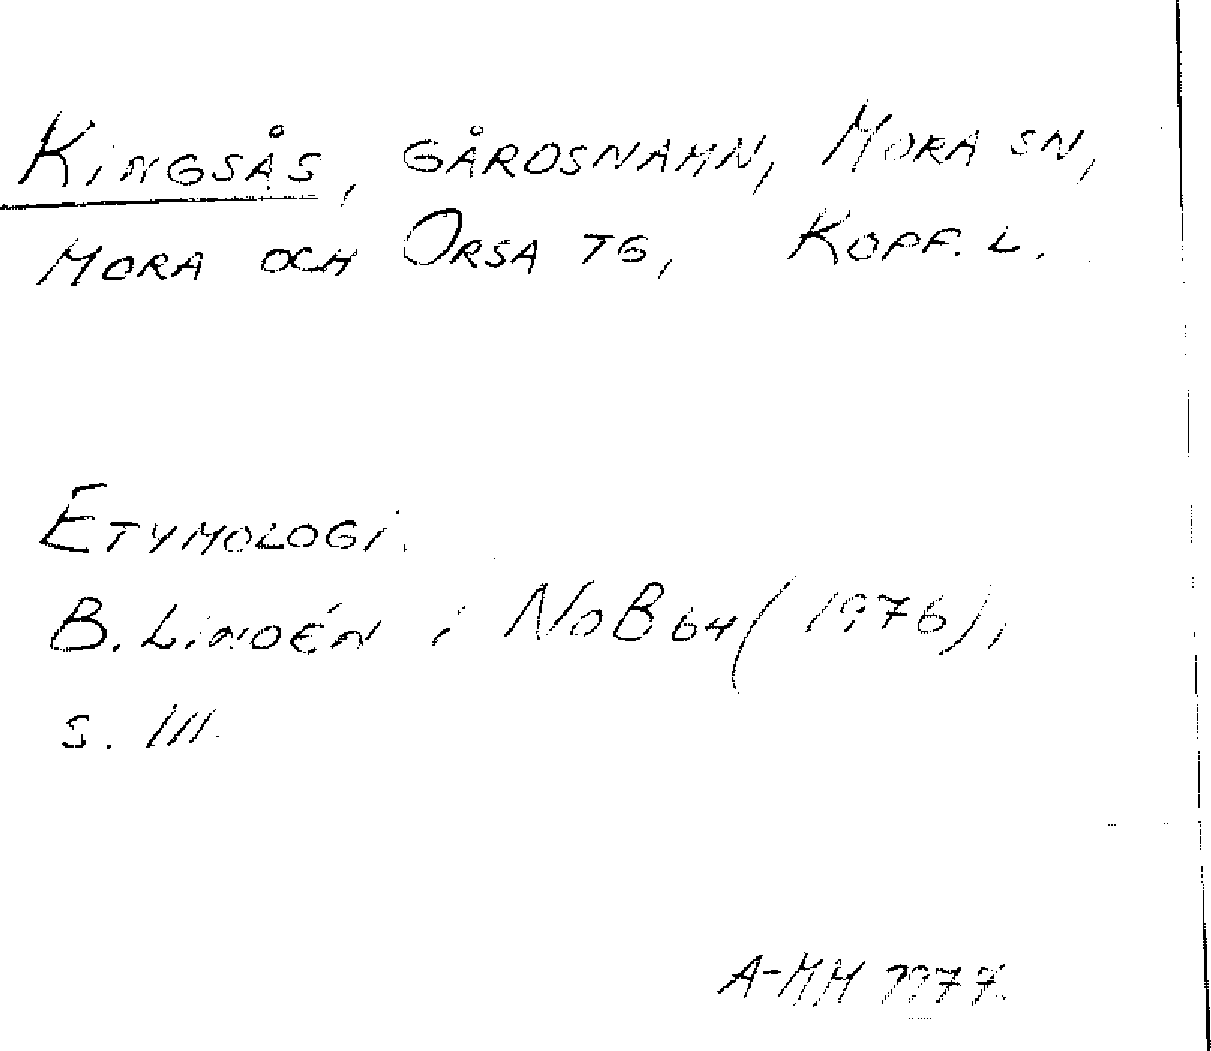 Kingsås, gårdsnamn, Mora sn,
Mora och Orsa tg, Kopp. l.
Etymologi.
B. Lindén i NoB 64 (1976),
s. 111.
A-MM 1977.